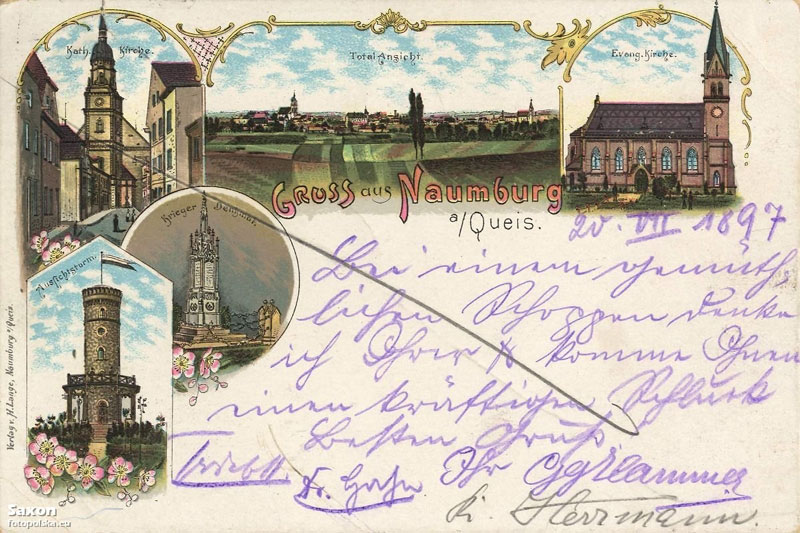 Kath. Kirche.
Total Ansicht.
Evang. Kirche.
Gruss aus Naumburg
a/Queis.
Krieger Denkmal.
Aussichtsturm.
Verlag v. H. Lange, Naumburg a/Queis.
20. VII 1897
Bei einem gemüth-
lichen Schoppen denke
ich Ihrer & komme Ihnen
einen kräftigen Schluck
Besten Gruß
Ihr
Dr. Hahn
Herrmann.
Saxon
fotopolska.eu